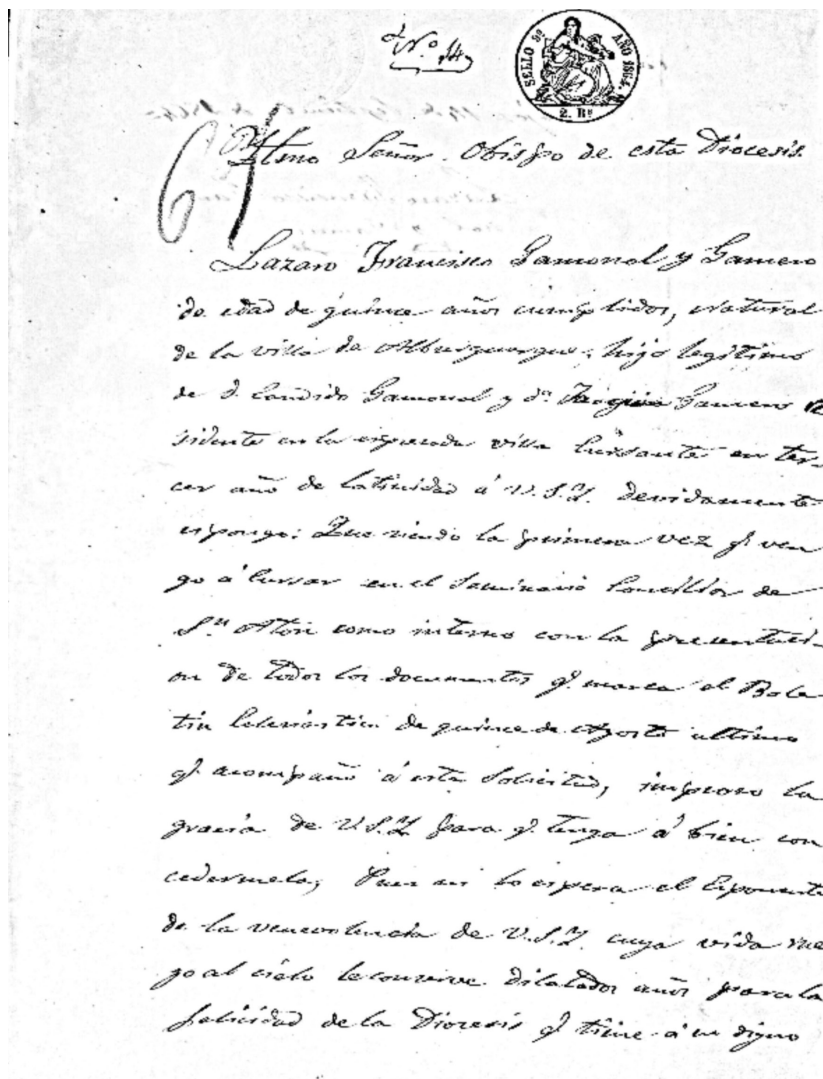 Nº 14
SELLO 9º AÑO 1864
2. Rs
61
Iltmo Señor Obispo de esta Diocesis.
Lazaro Francisco Gamonal y Gamero
de edad de quince años cumplidos, natural
de la villa de Alburquerque, hijo legitimo
de D. Candido Gamonal y Dª Joaquina Gamero re
sidente en la espresada villa Cursante en ter-
cer año de latinidad á V.S.Y. devidamente
espongo: Que siendo la primera vez q. ven
go á Cursar en el Seminario Concillar de
Sn Aton como interno con la presentaci-
on de todos los documentos q. marca el Bole
tin Eclesiastico de quince de Agosto ultimo
q. acompaño á esta Solicitud, imploro la
gracia de V.S.Y. para q. tenga á bien con
cedermela, Pues asi lo espera el Esponente
de la venevolencia de V.S.Y. cuya vida rue
go al cielo le conserve dilatados años para la
felicidad de la Diocesis q. tiene á su digno